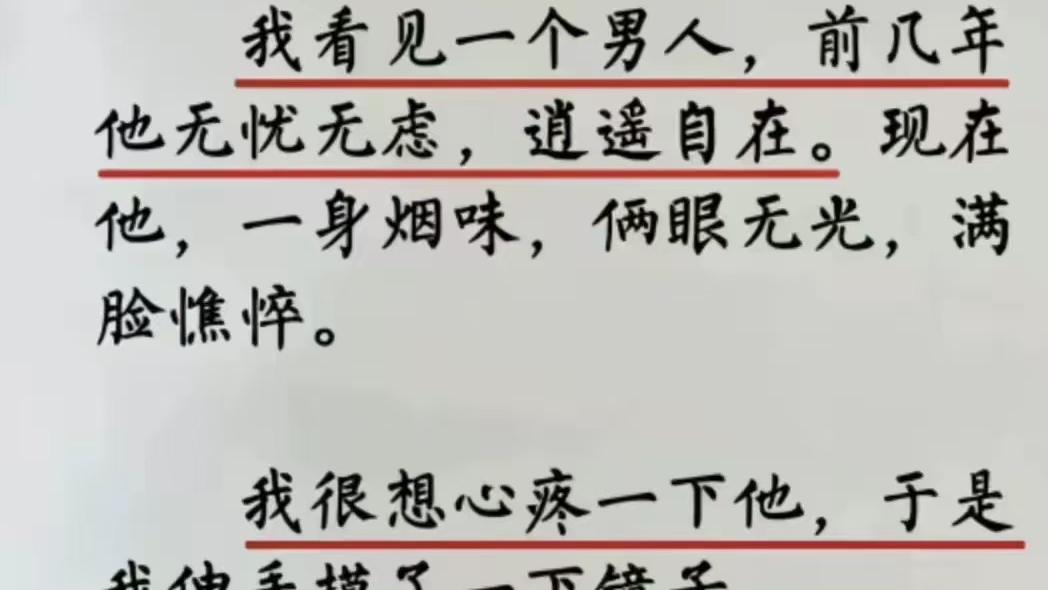 我看见一个男人，前几年
他无忧无虑，逍遥自在。现在
他，一身烟味，俩眼无光，满
脸憔悴。
我很想心疼一下他，于是
我伸手摸了一下镜子